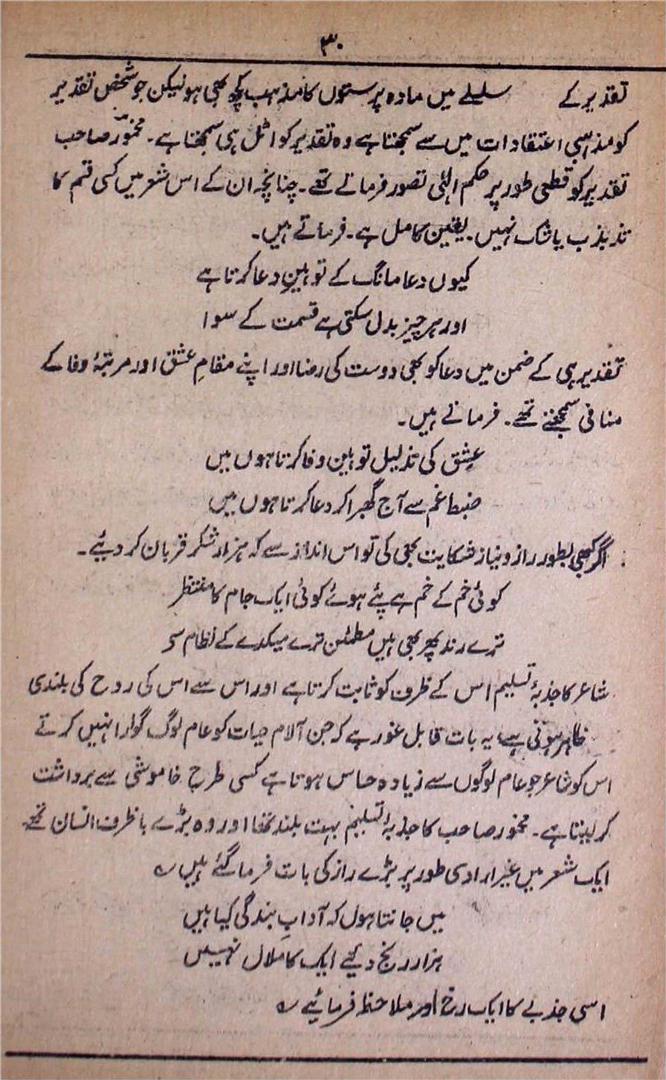 ۳۰
تقدیر کے سلسلے میں مادہ پرستوں کا مذہب کچھ بھی ہو لیکن جو شخص تقدیر
کو مذہبی اعتقادات میں سے سمجھتا ہے وہ تقدیر کو اٹل ہی سمجھتا ہے۔ مخمورؔ صاحب
تقدیر کو قطعی طور پر حکم الٰہی تصور فرماتے تھے۔ چنانچہ ان کے اس شعر میں کسی قسم کا
تذبذب یا شک نہیں۔ یقین کامل ہے۔ فرماتے ہیں۔
کیوں دعا مانگ کے توہینِ دعا کرتا ہے
اور ہر چیز بدل سکتی ہے قسمت کے سوا
تقدیر ہی کے ضمن میں دعا کو بھی دوست کی رضا اور اپنے مقامِ عشق اور مرتبۂ وفا کے
منافی سمجھتے تھے۔ فرماتے ہیں۔
عشق کی تذلیل توہین وفا کرتا ہوں میں
ضبط غم سے آج گھبرا کر دعا کرتا ہوں میں
اگر کبھی بطور راز و نیاز شکایت بھی کی تو اس انداز سے کہ ہزار شکر قربان کر دیئے۔
کوئی خم کے خم ہے پئے ہوئے کوئی ایک جام کا منتظر
ترے رند پھر بھی ہیں مطمئن ترے میکدے کے نظام سے
شاعر کا جذبۂ تسلیم اس کے ظرف کو ثابت کرتا ہے اور اس سے اس کی روح کی بلندی
ظاہر ہوتی ہے یہ بات قابل غور ہے کہ جن آلام حیات کو عام لوگ گوارا نہیں کرتے
اس کو شاعر جو عام لوگوں سے زیادہ حساس ہوتا ہے کسی طرح خاموشی سے برداشت
کر لیتا ہے۔ مخمور صاحب کا جذبۂ تسلیم بہت بلند تھا اور وہ بڑے باظرف انسان تھے۔
ایک شعر میں غیر ارادی طور پر بڑے راز کی بات فرما گئے ہیں ؎
میں جانتا ہوں کہ آدابِ بندگی کیا ہیں
ہزار رنج دیئے ایک کا ملال نہیں
اسی جذبے کا ایک رخ اور ملاحظہ فرمائیے ؎